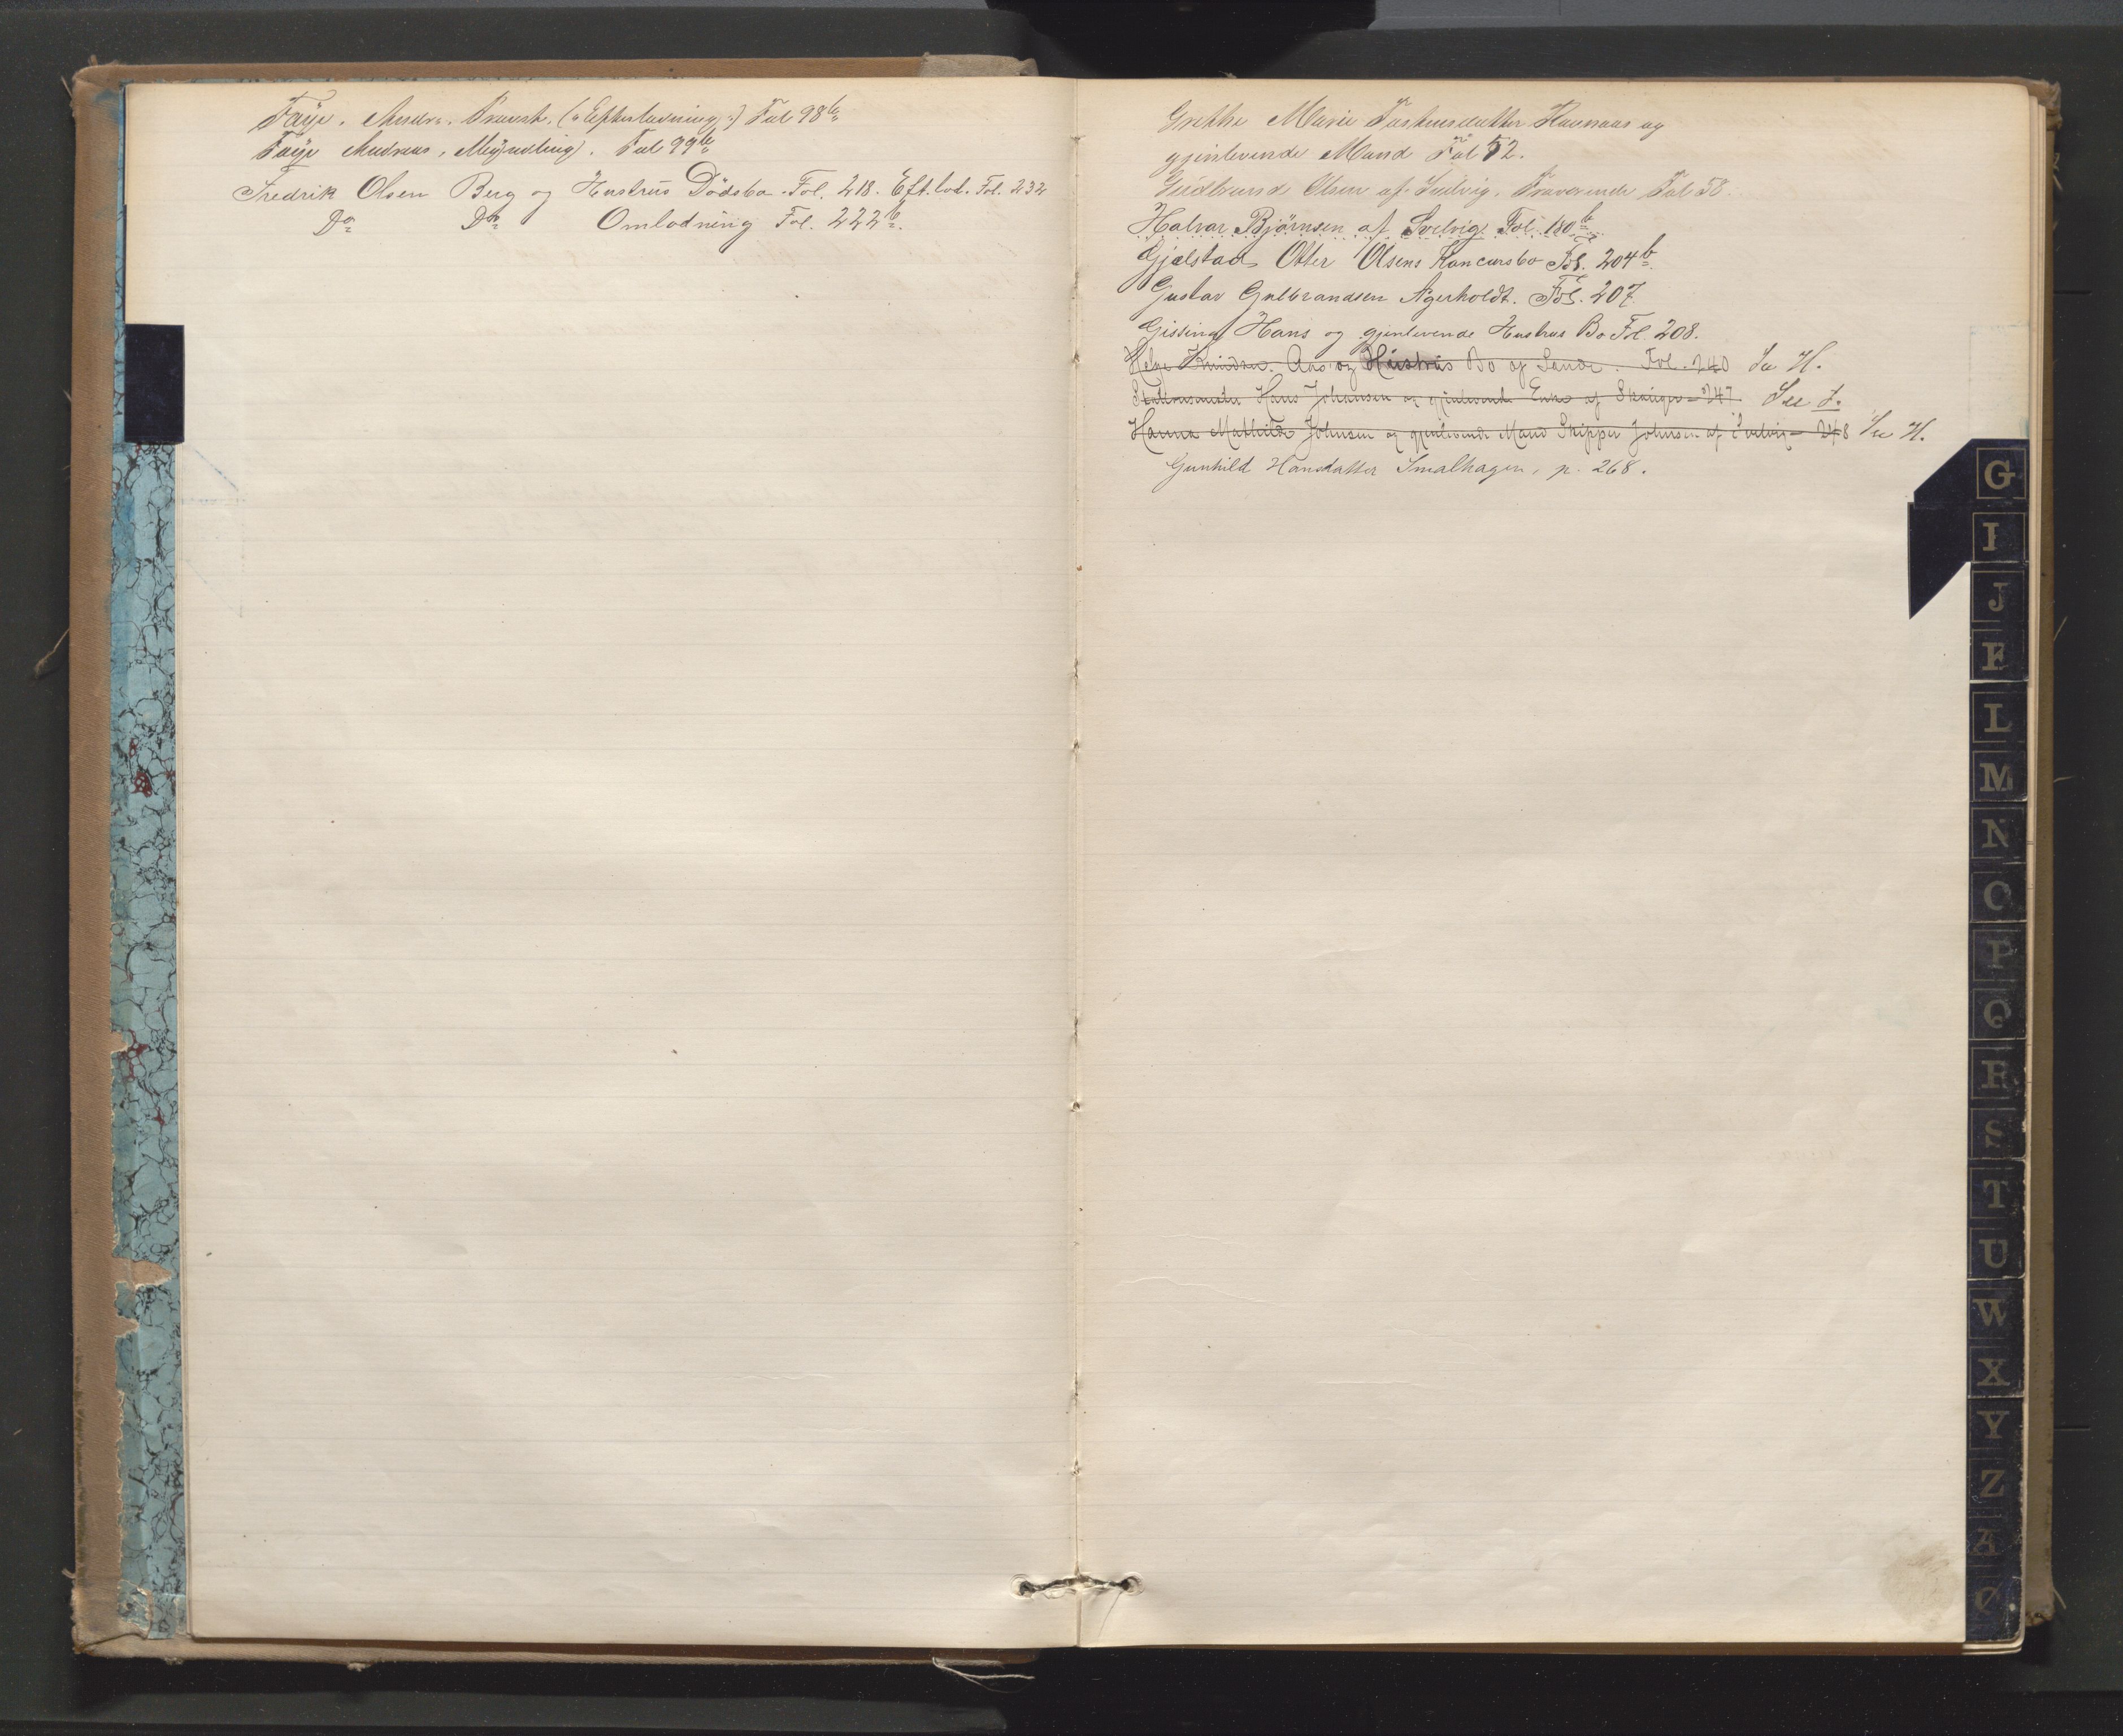 Faÿe. Andr. Provst. (: Efterladning :) Fol 98b
Faÿe Andreas, Myndling. Fol 99b
Fredrik Olsen Berg og Hustrus Dödsbo. Fol. 218. Eft. lod. Fol. 232
Do Do Omlodning Fol. 222b.
Grethe Marie Torstensdatter Havnaas og
gjenlevende Mand Fol 52.
Gudbrand Olsen af Svelvig. Fraværende Fol 58.
Halvor Björnsen af Svelvig Fol. 180b
Gjelstad Otter Olsens Koncursbo Fol. 204b
Gustav Gulbrandsen Agerholdt. Fol. 207
Gissing Hans og gjenlevende Hustrus Bo Fol. 208.
Helge Knudsen Aas og Hustrus Bo af Sande. Fol. 240 Se H.
Hans Johansen og gjenlevende Enke af Skauger - 247. See J.
Hanna Mathilde Johnsen og gjenlevende Mand Skipper Johnsen af Svelvig - 248 See H.
Gunhild Hansdatter Smalhagen, p. 268.
G
I
J
K
L
M
N
O
P
Q
R
S
T
U
W
X
Y
Z
Æ
Ø